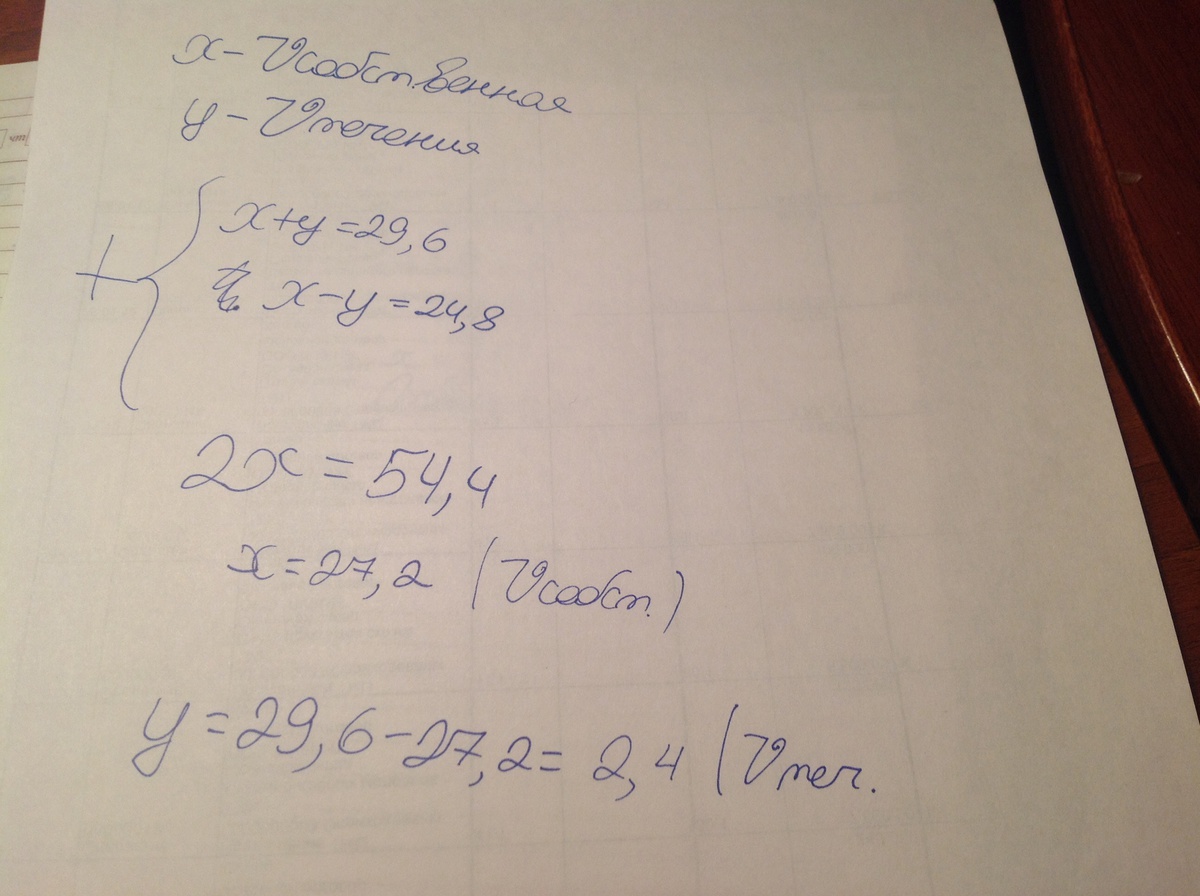 x - Vсобственная
y - Vтечения
+ { x+y=29,6
x-y=24,8
2x=54,4
x=27,2 (Vсобст.)
y=29,6-27,2=2,4 (Vтеч.